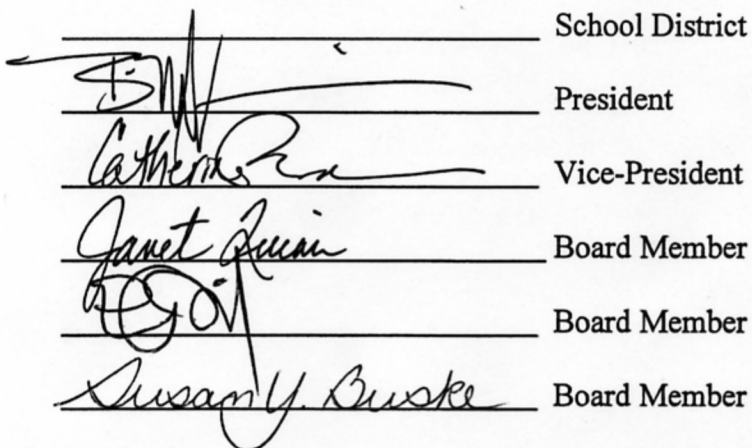 School District
President
Catherine Vice-President
Janet Quinn Board Member
Board Member
Susan Y. Buske Board Member